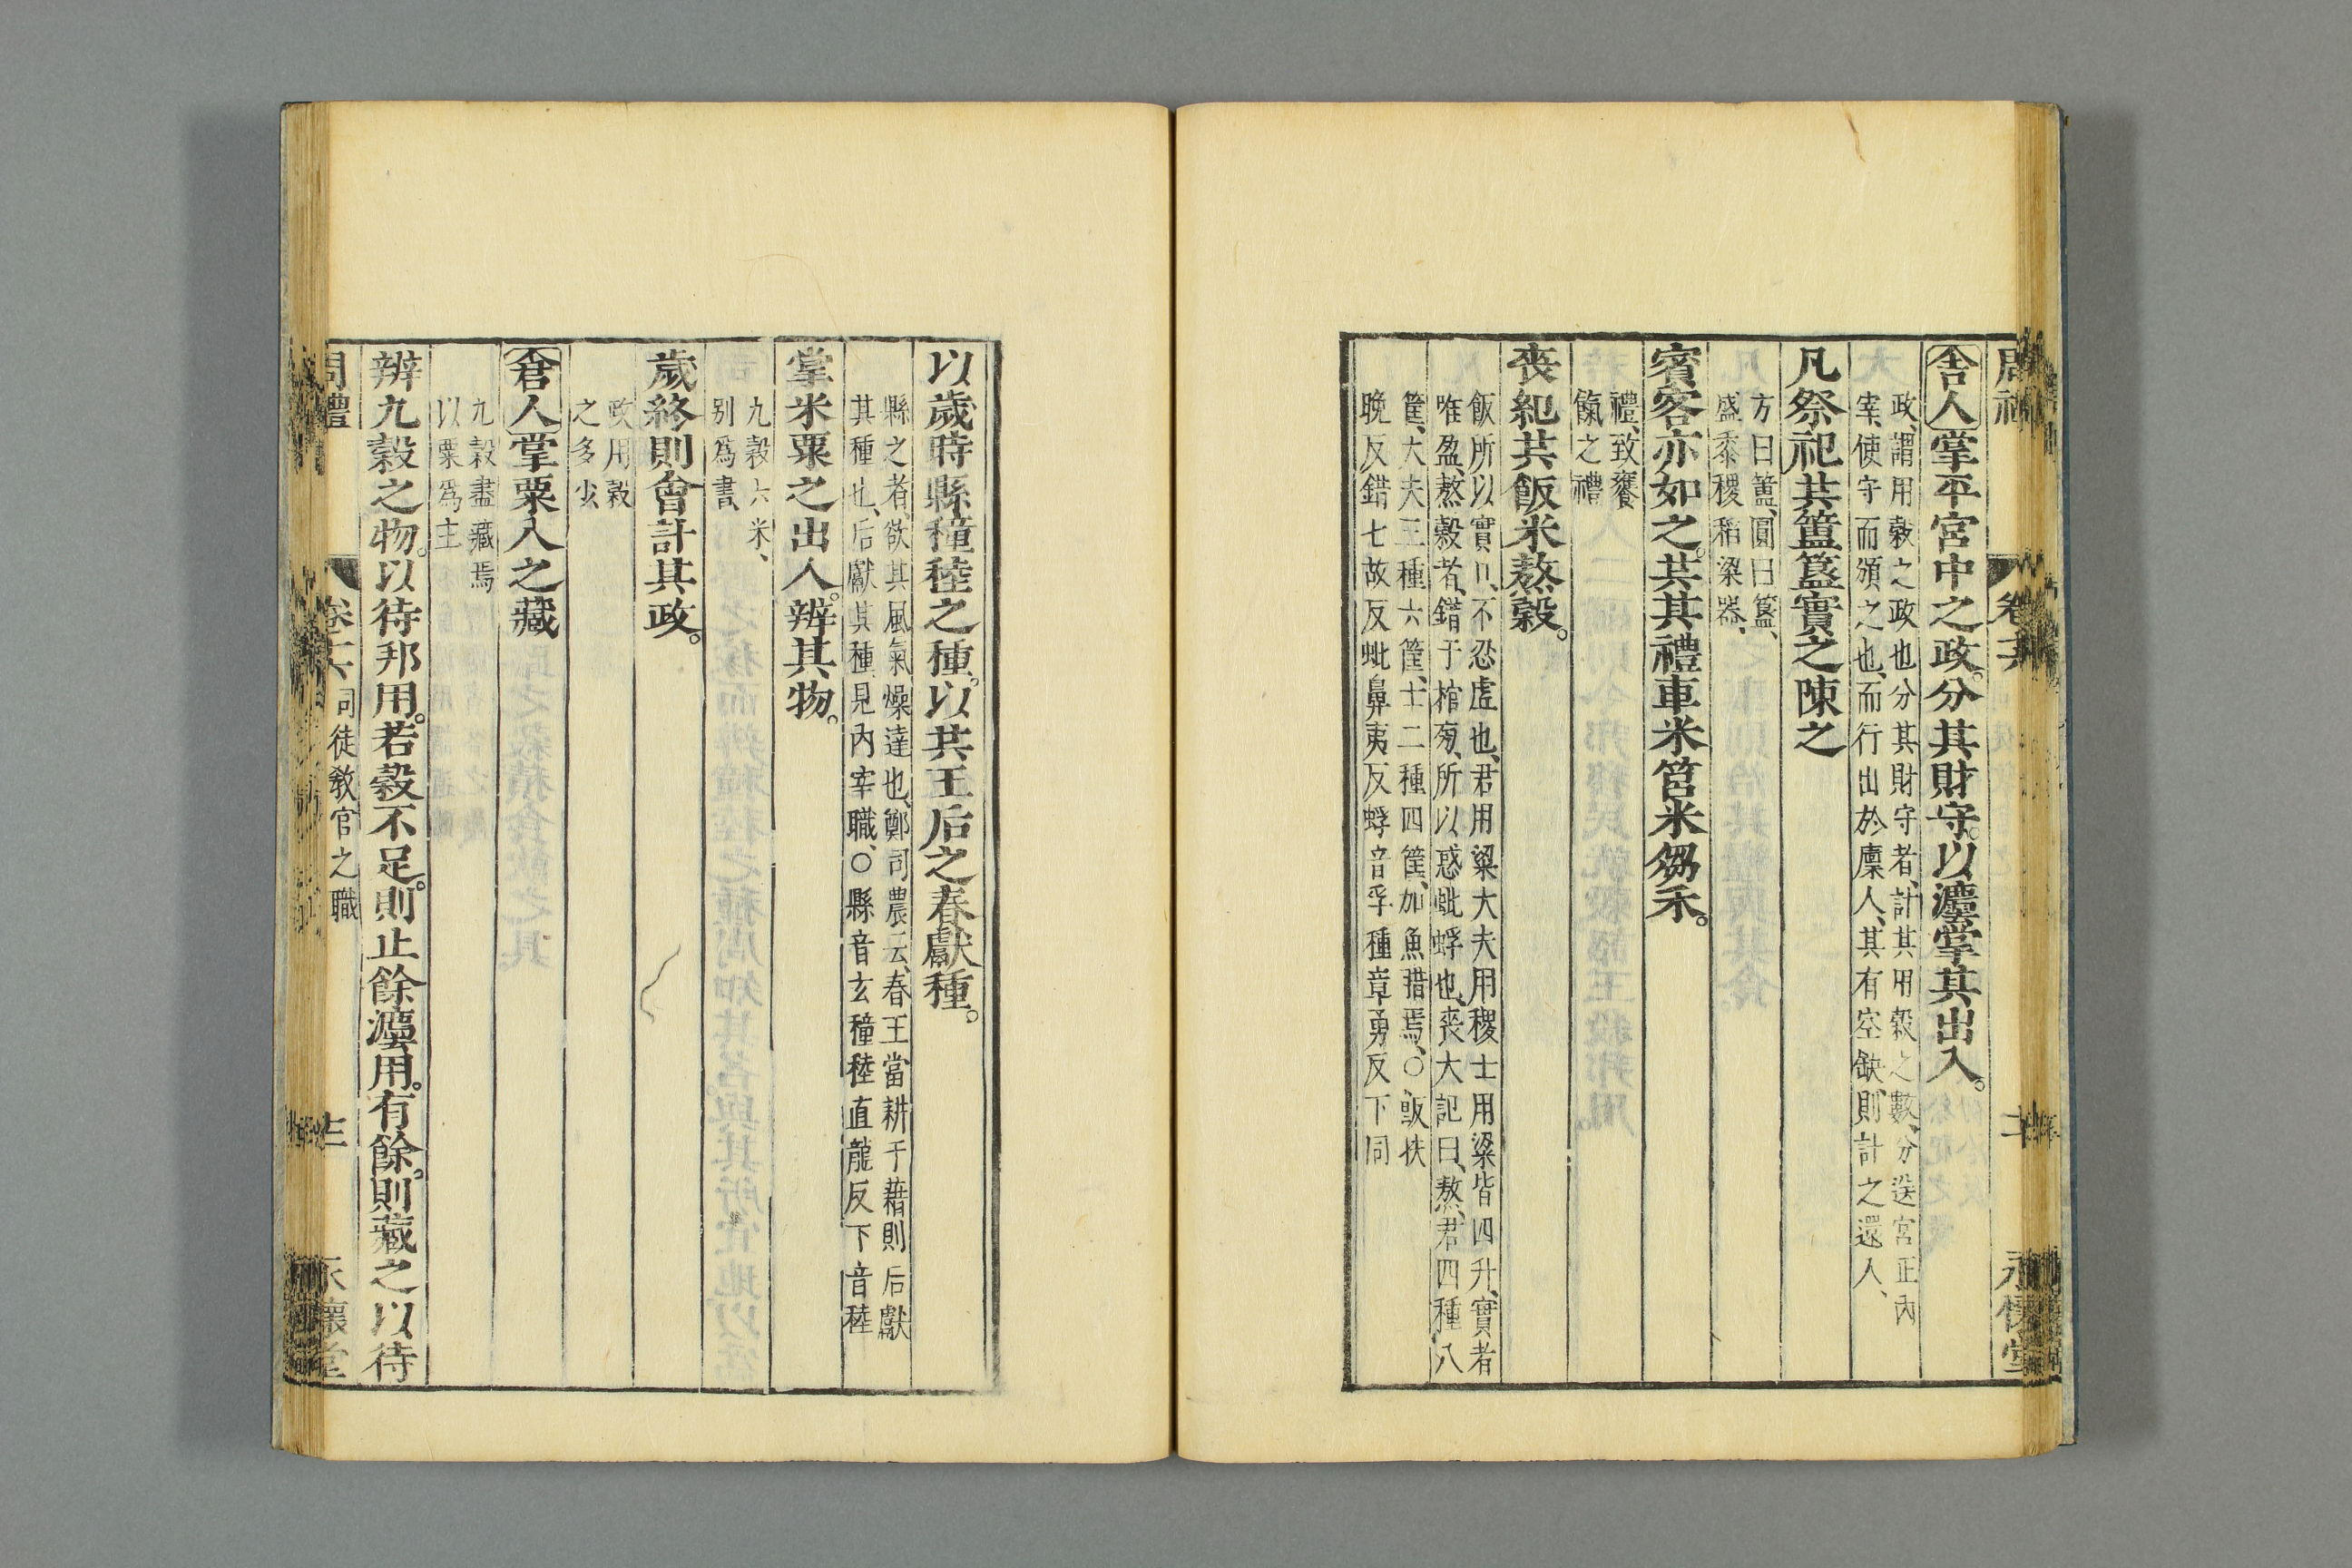 舎人掌平宮中之政。分其財守。以灋掌其出入。
政、謂用穀之政也分其財守者、計其用穀之數、分送宮正內
宰、使守而頒之也、而行出於廩人、其有空缺、則計之還入、
凡祭祀共簠簋實之陳之
方曰簠、圓曰簋、
盛黍稷稻粱器、
賓客亦如之。共其禮車米筥米芻禾。
禮、致饔
餼之禮
喪紀共飯米熬穀。
飯所以實口、不忍虛也、君用粱大夫用稷士用粱皆四升、實者
唯盈、熬穀者、錯于棺旁、所以惑蚍蜉也、喪大記曰、熬、君四種八
筐、大夫三種六筐、士二種四筐、加魚腊焉、○飯扶
晚反錯七故反蚍鼻夷反蜉音孚種章勇反下同
以歲時縣穜稑之種。以共王后之春獻種。
縣之者、欲其風氣燥達也、鄭司農云、春王當耕于藉則后獻
其種也、后獻其種見內宰職、○縣音玄穜稑直龍反下音稑
掌米粟之出入。辨其物。
九穀六米、
別爲書、
歲終則會計其政。
政用穀
之多少
倉人掌粟入之藏
九穀盡藏焉
以粟爲主
辨九穀之物。以待邦用。若穀不足。則止餘灋用。有餘。則藏之以待
周禮 卷十六 司徒敎官之職 永懷堂